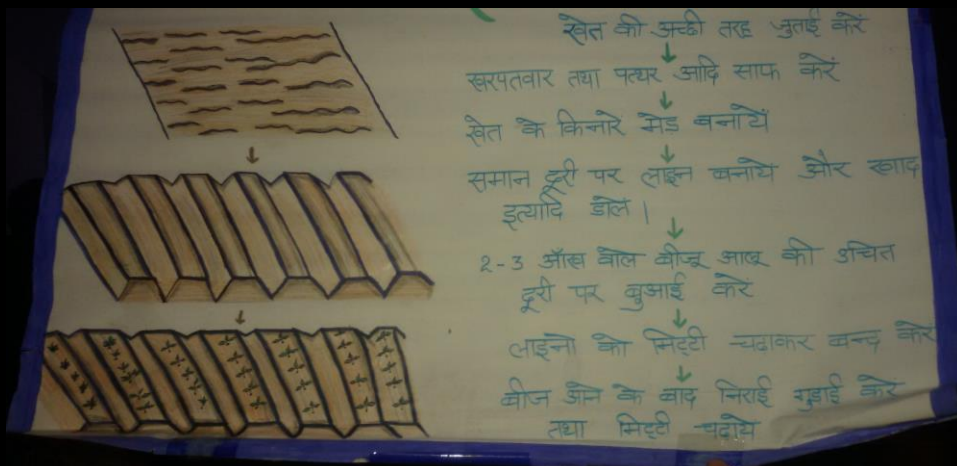 खेत की अच्छी तरह जुताई करें
खरपतवार तथा पत्थर आदि साफ करें
खेत के किनारे मेड बनायें
समान दूरी पर लाइन बनाये और खाद
इत्यादि डाले।
2-3 आँख वाले बीजू आलू की उचित
दूरी पर बुआई करें
लाइनो को मिट्टी चढाकर बन्द करें
बीज आने के बाद निराई गुडाई करे
तथा मिट्टी चढाये